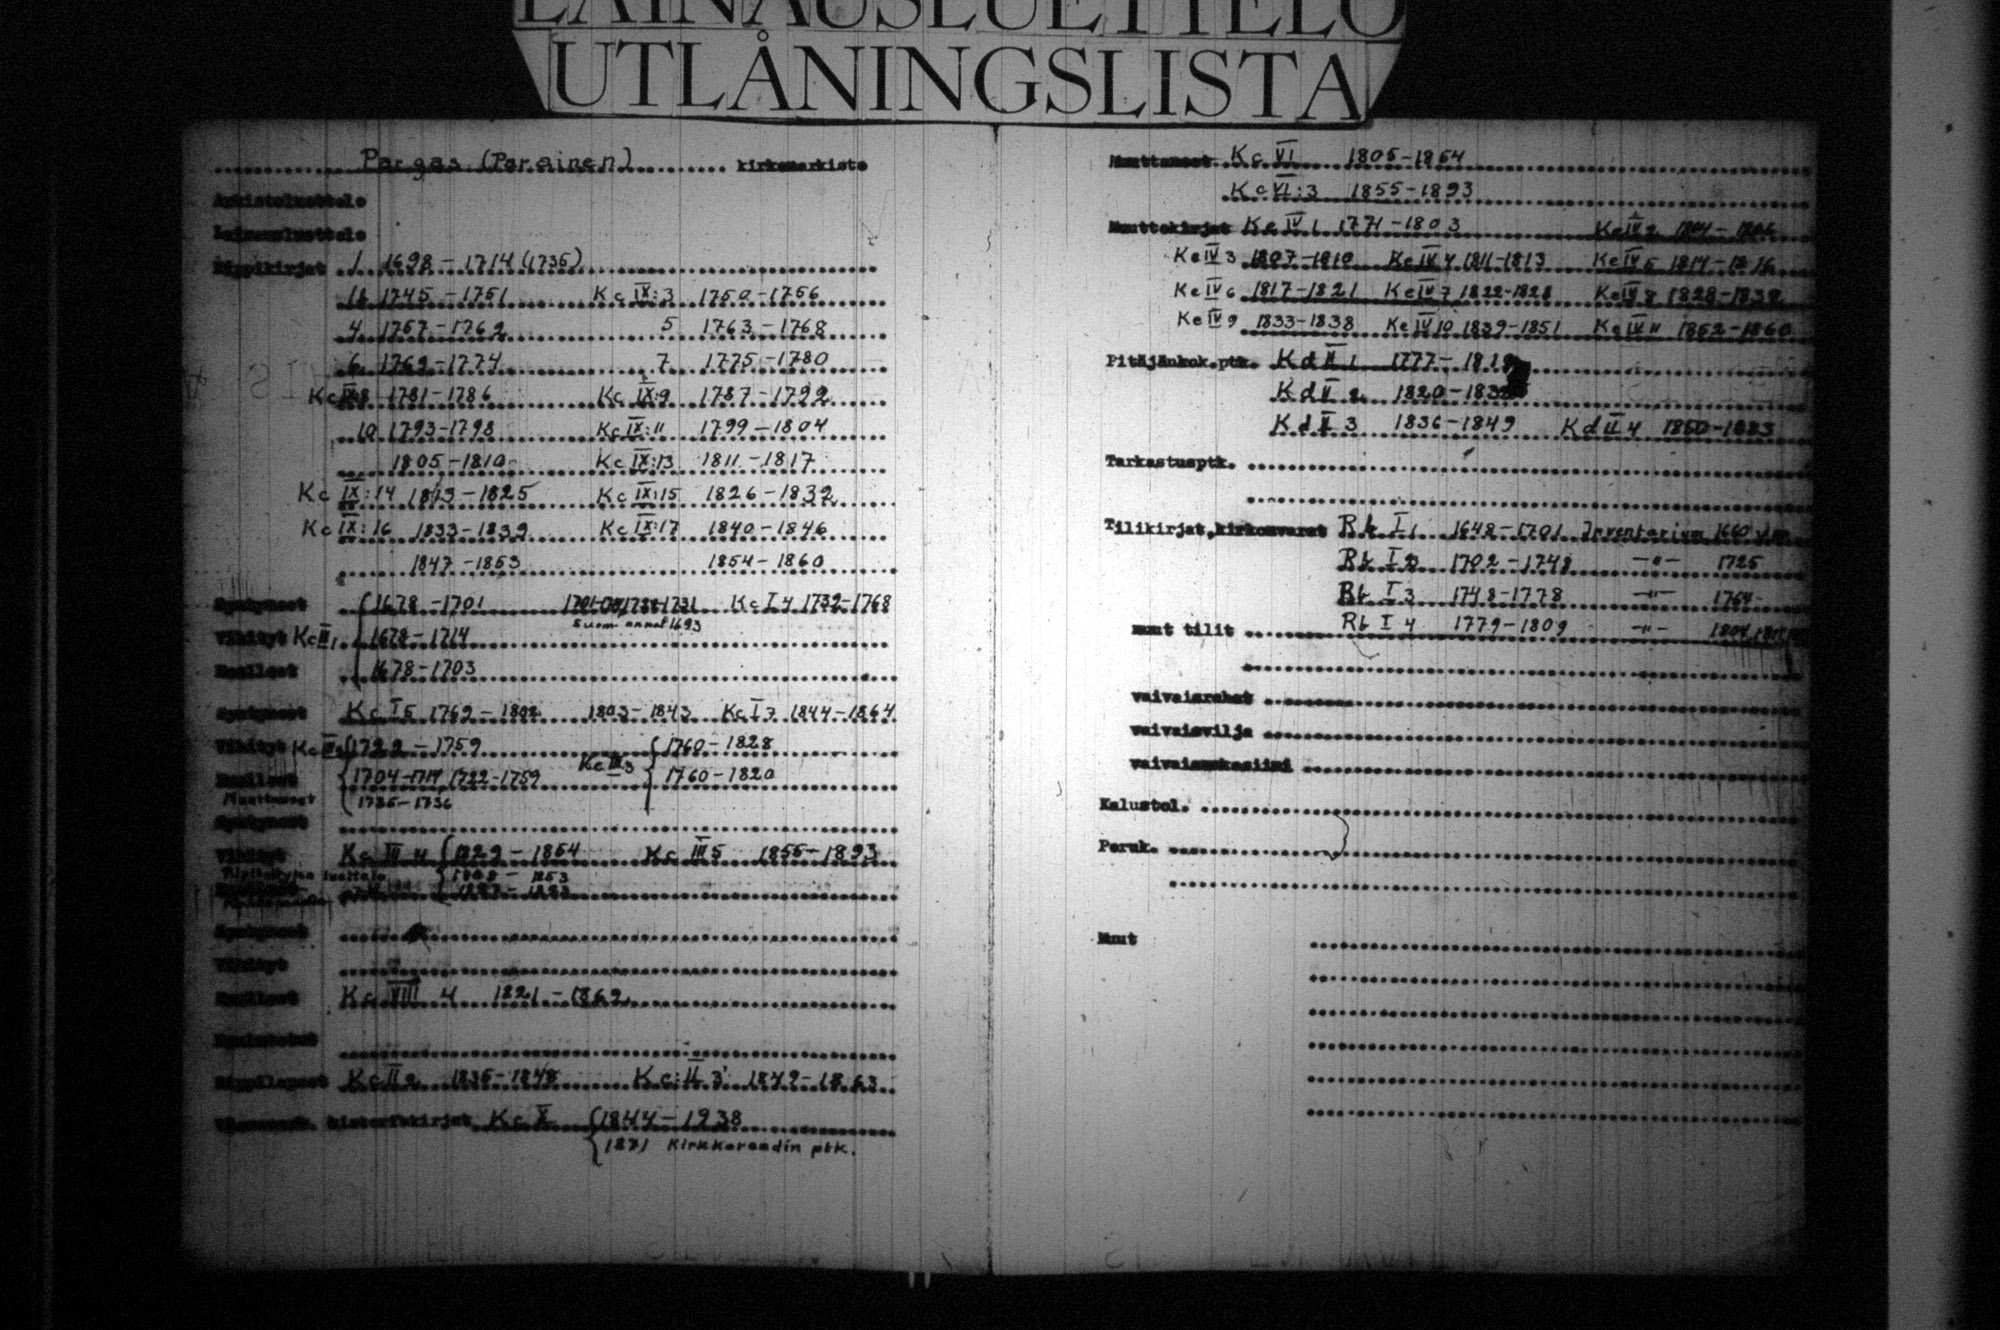 LAINAUSLUETTELO
UTLÅNINGSLISTA
Pargas (Parainen) kirkonarkisto
Arkistoluettelo
Lainausluettelo
Rippikirjat 1 1698-1714 (1735)
1745-1751 Kc IX:3 1750-1756
4 1757-1762 5 1763-1768
6 1769-1774 7 1775-1780
Kc IX:8 1781-1786 Kc IX:9 1787-1792
10 1793-1798 Kc IX:11 1799-1804
1805-1810 Kc IX:13 1811-1817
Kc IX:14 1825 Kc IX:15 1826-1832
Kc IX:16 1833-1839 Kc IX:17 1840-1846
1847-1853 1854-1860
Syntyneet 1678-1701 Kc I 4 1732-1768
Vihityt Kc III 1 1678-1714
Kuolleet 1678-1703
Syntyneet Kc I 5 1769-1802 1803-1843 Kc I 7 1844-1864
Vihityt 1722-1759 Kc III 3 1760-1828
Kuolleet 1704-1714, 1722-1759 1760-1820
Muuttaneet 1735-1736
Syntyneet
Vihityt Kc III 4 1829-1854 Kc III 5 1855-1893
Syntyneet
Vihityt
Kuolleet Kc VIII 4 1821-1862
Kuulutetut
Rippilapset Kc II 2 1835-1848 Kc II 3 1849-1863
historiakirjat Kc X 1844-1938
1871 Kirkkoraadin ptk.
Muuttaneet Kc VI 1805-1854
Kc VI:3 1855-1893
Muuttokirjat Ke IV 1 1771-1803 Ke IV 2
Ke IV 3 1807-1810 Ke IV 4 1811-1813 Ke IV 5 1814-1816
Ke IV 6 1817-1821 Ke IV 7 1822-1828 Ke IV 8 1828-1832
Ke IV 9 1833-1838 Ke IV 10 1839-1851 Ke IV 11 1852-1860
Pitäjänkok.ptk. Kd II 1 1777-1819
Kd II 2 1820-
Kd II 3 1836-1849 Kd II 4 1850-1883
Tarkastusptk.
Tilikirjat, kirkonvarat Rk I 1 1648-1701 Inventarium 1660
Rk I 2 1702-1748 -"- 1725
Rk I 3 1748-1778 -"- 1764
muut tilit Rk I 4 1779-1809 -"- 1804
vaivaisrahat
vaivaisvilja
vaivaismakasiini
Kalustol.
Peruk.
Muut